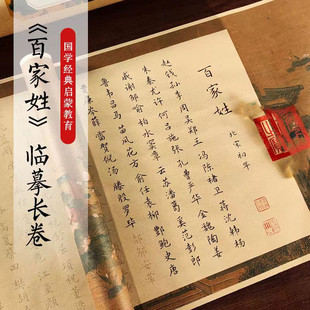 国学经典启蒙教育
《百家姓》临摹长卷
百家姓
北宋初年
赵钱孙李周吴郑王冯陈褚卫蒋沈韩杨
朱秦尤许何吕施张孔曹严华金魏陶姜
戚谢邹喻柏水窦章云苏潘葛奚范彭郎
鲁韦昌马苗凤花方俞任袁柳酆鲍史唐
费廉岑薛雷贺倪汤滕殷罗毕